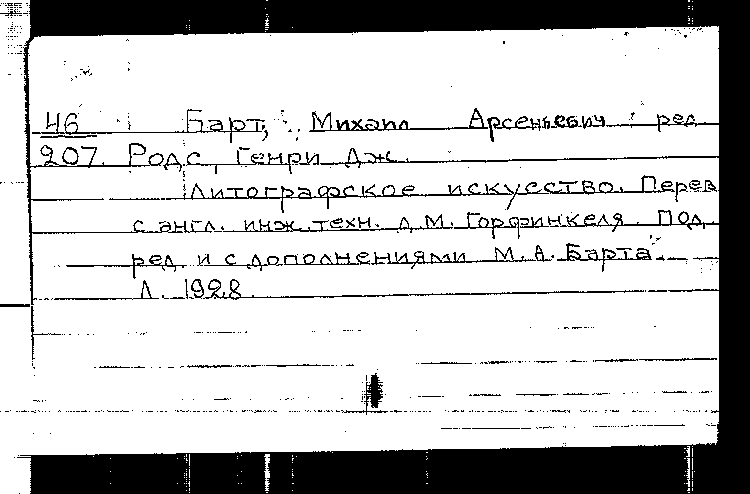 46 Барт, Михаил Арсеньевич ред.
207. Родс, Генри Дж.
Литографское искусство. Перев
с англ. инж. техн. Д. М. Горфинкеля. Под.
ред. и с дополнениями М. А. Барта.
Л. 1928.